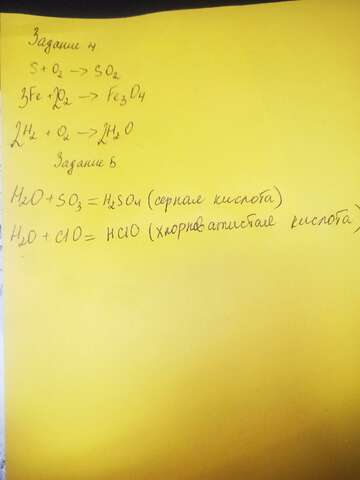 Задание 4
S + O2 → SO2
3Fe + 2O2 → Fe3O4
2H2 + O2 → 2H2O
Задание 5
H2O + SO3 = H2SO4 (серная кислота)
H2O + ClO = HClO (хлорноватистая кислота)